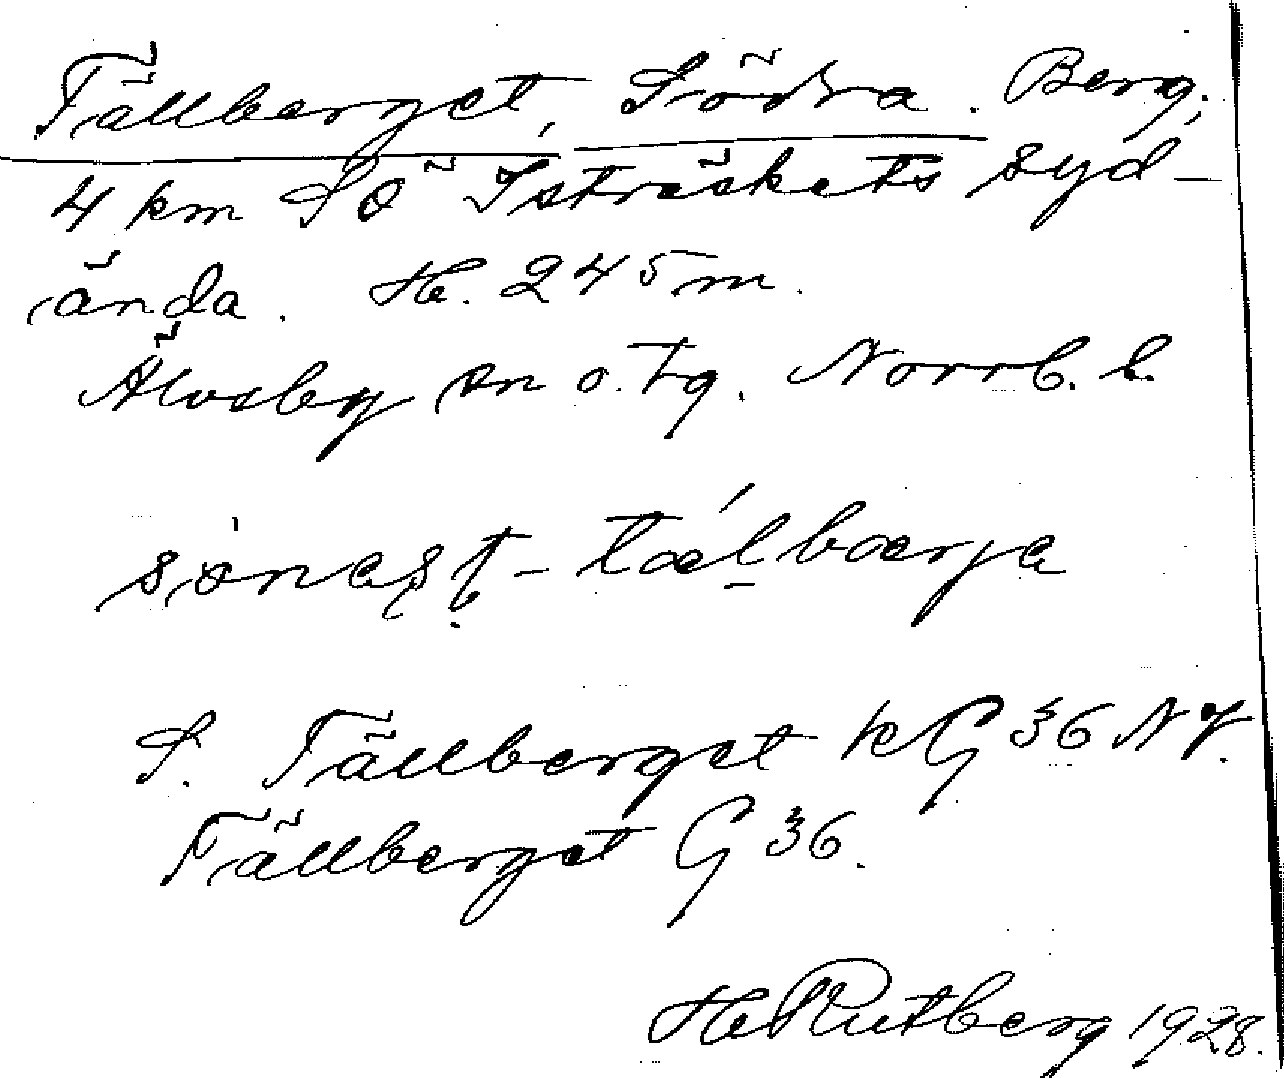 Tällberget, Södra. Berg,
4 km SÖ Isträskets syd-
ända. H. 245 m.
Älvsby sn o. tg. Norrb. l.
S. Tällberget kG 36 NV.
Tällberget G 36.
H Rutberg 1928.